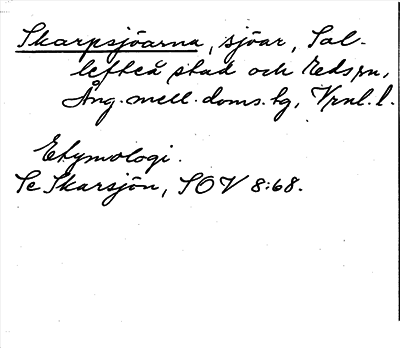 Skarpsjöarna, sjöar, Sol-
lefteå stad och Eds sn,
Ång. mell. doms.hg, Vrnl. l.
Etymologi.
Se Skarsjön, SOV 8:68.